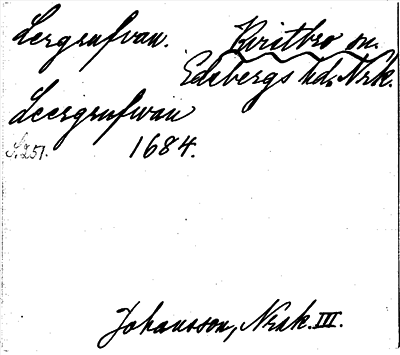 Lergrufvan. Kvistbro sn.
Edsbergs hd. Nrk.
Leergrufwan
S. 251. 1684.
Johansson, Nrak. III.